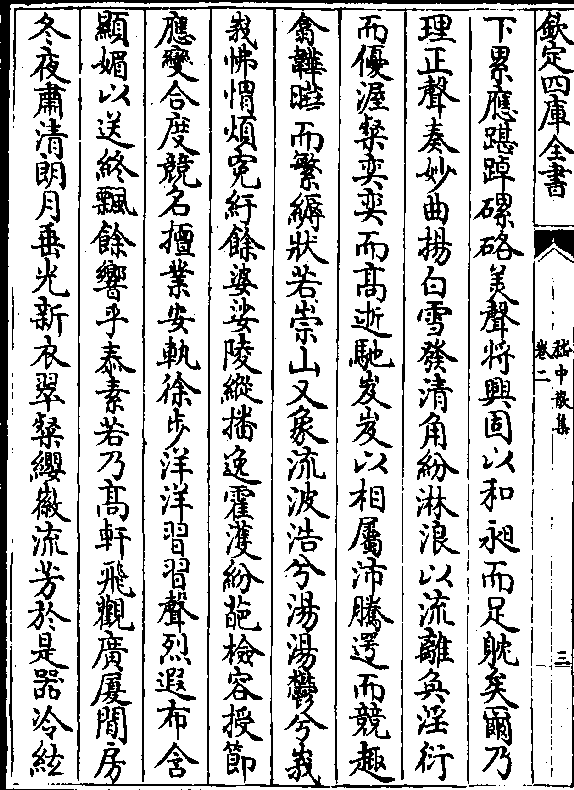 欽定四庫全書
嵇中散集
卷二
三
下累應踸踔磥硌美聲將興固以和昶而足躭矣爾乃
理正聲奏妙曲揚白雪發清角紛淋浪以流離奐淫衍
而優渥粲奕奕而高逝馳岌岌以相屬沛騰遌而競趣
翕韡曄而繁縟狀若崇山又象流波浩兮湯湯鬱兮峩
峩怫㥜煩寃紆餘婆娑陵縱播逸霍濩紛葩檢容授節
應變合度競名擅業安軌徐步洋洋習習聲烈遐布含
顯媚以送終飄餘響乎泰素若乃高軒飛觀廣厦閒房
冬夜肅清朗月垂光新衣翠粲纓徽流芳於是器冷絃